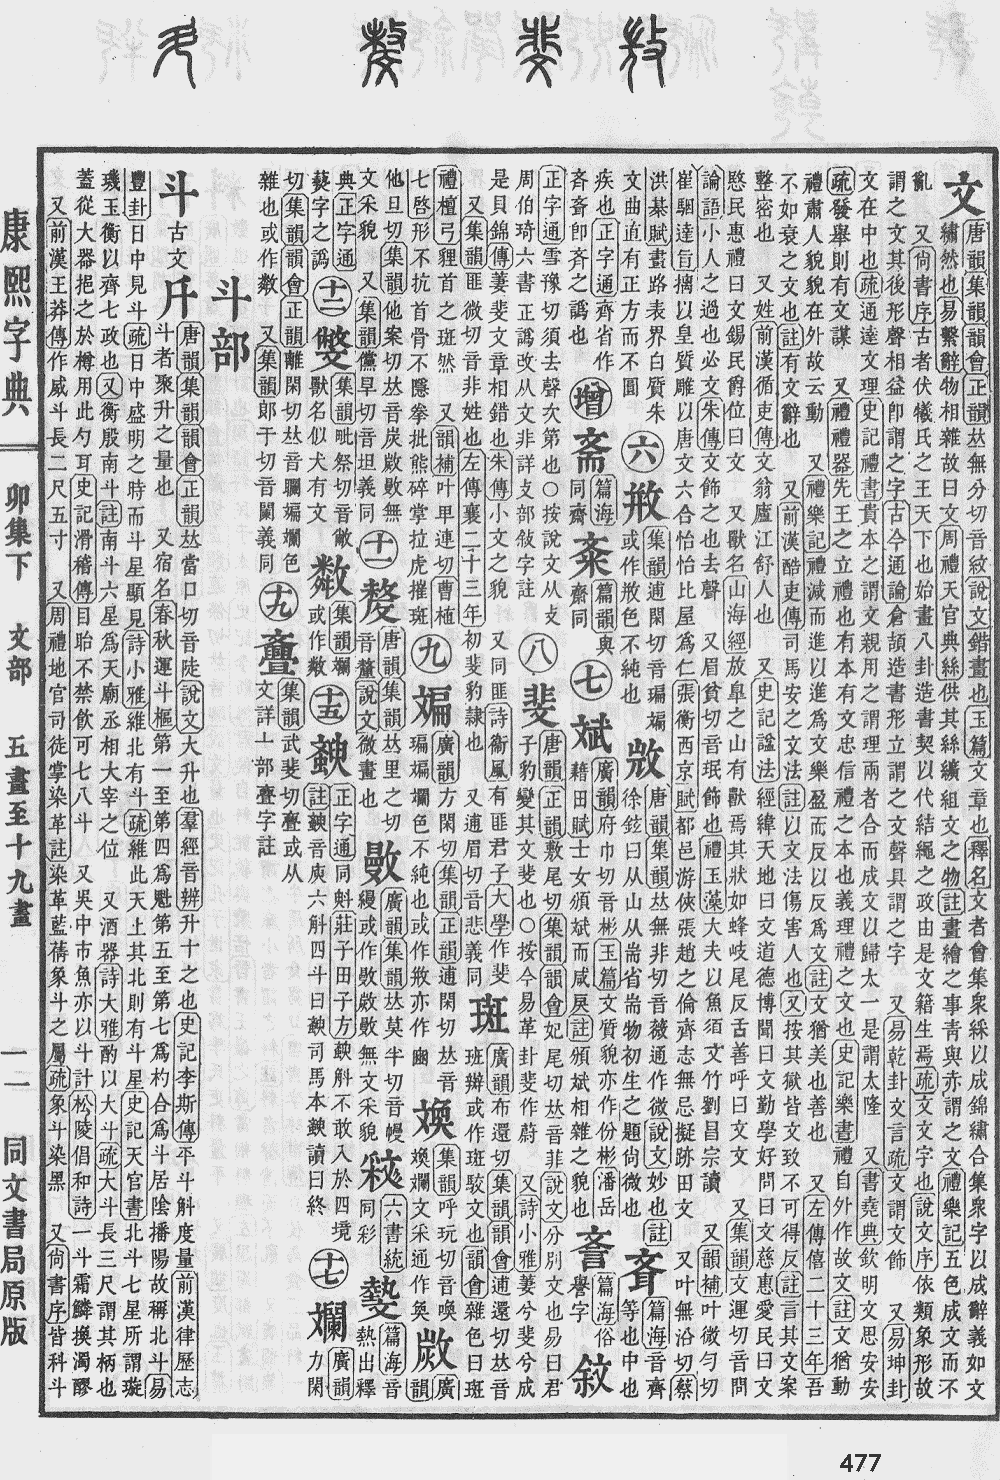 文 唐韻集韻韻會正韻𠀤無分切音紋說文錯畫也玉篇文章也釋名文者會集衆綵以成錦繡合集衆字以成辭義如文
繡然也易繫辭物相雜故曰文周禮天官典絲供其絲纊組文之物註畫繪之事青與赤謂之文禮樂記五色成文而不
亂 又尙書序古者伏犧氏之王天下也始畫八卦造書契以代結繩之政由是文籍生焉疏文文字也說文序依類象形故
謂之文其後形聲相益卽謂之字古今通論倉頡造書形立謂之文聲具謂之字 又易乾卦文言疏文謂文飾 又易坤卦
文在中也疏通達文理史記禮書貴本之謂文親用之謂理兩者合而成文以歸太一是謂太隆 又書堯典欽明文思安安
疏發舉則有文謀 又禮禮器先王之立禮也有本有文忠信禮之本也義理禮之文也史記樂書禮自外作故文註文猶動
禮肅人貌貌在外故云動 又禮樂記禮減而進以進爲文樂盈而反以反爲文註文猶美也善也 又左傳僖二十三年吾
不如衰之文也註有文辭也 又前漢酷吏傳司馬安之文法註以文法傷害人也又按其獄皆文致不可得反註言其文案
整密也 又姓前漢循吏傳文翁廬江舒人也 又史記諡法經緯天地曰文道德博聞曰文勤學好問曰文慈惠愛民曰文
愍民惠禮曰文錫民爵位曰文 又獸名山海經放皐之山有獸焉其狀如蜂岐尾反舌善呼曰文文 又集韻文運切音問
論語小人之過也必文朱傳文飾之也去聲 又眉貧切音珉飾也禮玉藻大夫以魚須文竹劉昌宗讀 又韻補叶微勻切
崔駰達旨摛以皇質雕以唐文六合怡怡比屋爲仁張衡西京賦都邑游俠張趙之倫齊志無忌擬跡田文 又叶無沿切蔡
洪棊賦畫路表界白質朱
文曲直有正方而不圓
六 㪵 集韻逋閑切音㻞㻞
或作㪵色不純也
𢼸 唐韻集韻𠀤無非切音薇通作微說文妙也註
徐鉉曰从山从耑省耑物初生之題尙微也
斉 篇海音齊
等也中也
疾也正字通齊省作
斉斉卽齐之譌也
增 斋 篇海
同齋
斎 篇韻
齋同
七 斌 廣韻府巾切音彬玉篇文質貌亦作份彬潘岳
藉田賦士女頒斌而咸戾註頒斌相雜之貌也
篇海俗
譽字
敘
正字通雪豫切須去聲次第也○按說文从攴
周伯琦六書正譌改从文非詳攴部敍字註
八 斐 唐韻正韻敷尾切集韻韻會妃尾切𠀤音菲說文分別文也易曰君
子豹變其文斐也○按今易革卦斐作蔚 又詩小雅萋兮斐兮成
是貝錦傳萋斐文章相錯也朱傳小文之貌 又同匪詩衞風有匪君子大學作斐
又集韻匪微切音非姓也左傳襄二十三年初斐豹隸也 又通眉切音悲義同
斑 廣韻布還切集韻韻會逋還切𠀤音
班辦或作斑駮文也韻會雜色曰斑
禮檀弓貍首之斑然 又韻補叶卑連切曹植
七啓形不抗首骨不隱拳批熊碎掌拉虎摧斑
九 㻞 廣韻方閑切集韻正韻逋閑切𠀤音
㻞㻞斕色不純也或作㪵亦作豳
㬇 集韻呼玩切音喚
㬇斕文采通作奐
廣韻
他旦切集韻他案切𠀤音炭敭敭無
文采貌 又集韻儻旱切音坦義同
十一 斄 唐韻集韻𠀤里之切
音釐說文微畫也
廣韻集韻𠀤莫半切音幔
縵或作敭敭敭無文采貌
六書統
同彩
篇海音
熱出釋
典正字通
蓺字之譌
十二 斃 集韻毗祭切音敝
獸名似犬有文
集韻斕
或作斕
十五 正字通同斞莊子田子方斔斛不敢入於四境
註斔音庾六斛四斗曰斔司馬本斔讀曰終
十七 斕 廣韻力閑
切集韻韻會正韻離閑切𠀤音𤄱㻞斕色
雜也或作斕 又集韻郞干切音闌義同
十九 斖 集韻武斐切斖或从
文詳亠部亹字註
斗部
斗 古文 斤
唐韻集韻韻會正韻𠀤當口切音陡說文十升也羣經音辨升十之也史記李斯傳平斗斛度量前漢律歷志
斗者聚升之量也 又宿名春秋運斗樞第一至第四爲魁第五至第七爲杓合爲斗居陰播陽故稱北斗易
豐卦日中見斗疏日中盛明之時而斗星顯見詩小雅維北有斗疏維此天上其北則有斗星史記天官書北斗七星所謂璇
璣玉衡以齊七政也又衡殷南斗註南斗六星爲天廟丞相大宰之位 又酒器詩大雅酌以大斗疏大斗長三尺謂其柄也
蓋從大器挹之於樽用此勺耳史記滑稽傳目眙不禁飮可七八斗 又吳中市魚亦以斗計松陵倡和詩一斗霜鱗換濁醪
又前漢王莽傳作威斗長二尺五寸 又周禮地官司徒掌染革註染革藍蒨象斗之屬疏象斗染黑 又尙書序皆科斗
康熙字典 卯集下 文部 五畫至十九畫 一一 同文書局原版
477